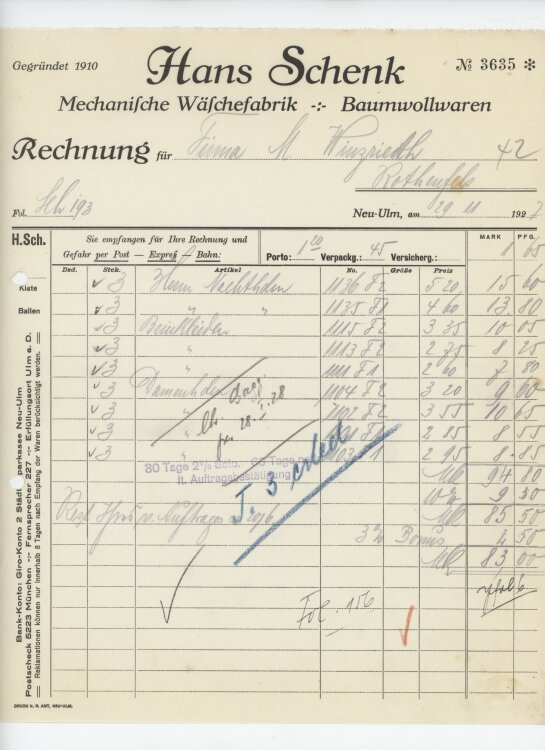 Gegründet 1910
Hans Schenk
№ 3635 *
Mechanische Wäschefabrik -:- Baumwollwaren
Rechnung für Firma M
42
Rothenfels
Fol.
193
Neu-Ulm, am 29 11 1927
H.Sch.
Sie empfangen für Ihre Rechnung und
Gefahr per Post — Expreß — Bahn:
Porto: 1 20 Verpackg.: 45 Versicherg.:
MARK PFG.
1 65
Dzd. Stck. Artikel No. Größe Preis
Kiste
Ballen
3 Herrn Nachthden 1136 F2 5 20 15 60
3 " " 1135 F1 4 60 13 80
3 Beinkleider 1115 F2 3 35 10 05
3 " 1113 F2 2 75 8 25
3 " 1111 F1 2 60 7 80
3 Damenhden 1104 F2 3 20 9 60
3 " 1102 F2 3 55 10 65
3 " 1101 2 85 8 55
3 " 1103 2 95 8 85
per 28. 1. 28
30 Tage 2% Sclo.
lt. Auftragsbestätigung
J. 3 erled
94 80
10% 9 30
85 50
Rest
3% Bonus
83 00
Fol. 156
Bank-Konto: Giro-Konto 2 Städt. Sparkasse Neu-Ulm
Postscheck 5223 München -:- Fernsprecher 227 -:- Erfüllungsort Ulm a. D.
Reklamationen können nur innerhalb 8 Tagen nach Empfang der Waren berücksichtigt werden.
DRUCK V. R. ABT, NEU-ULM.